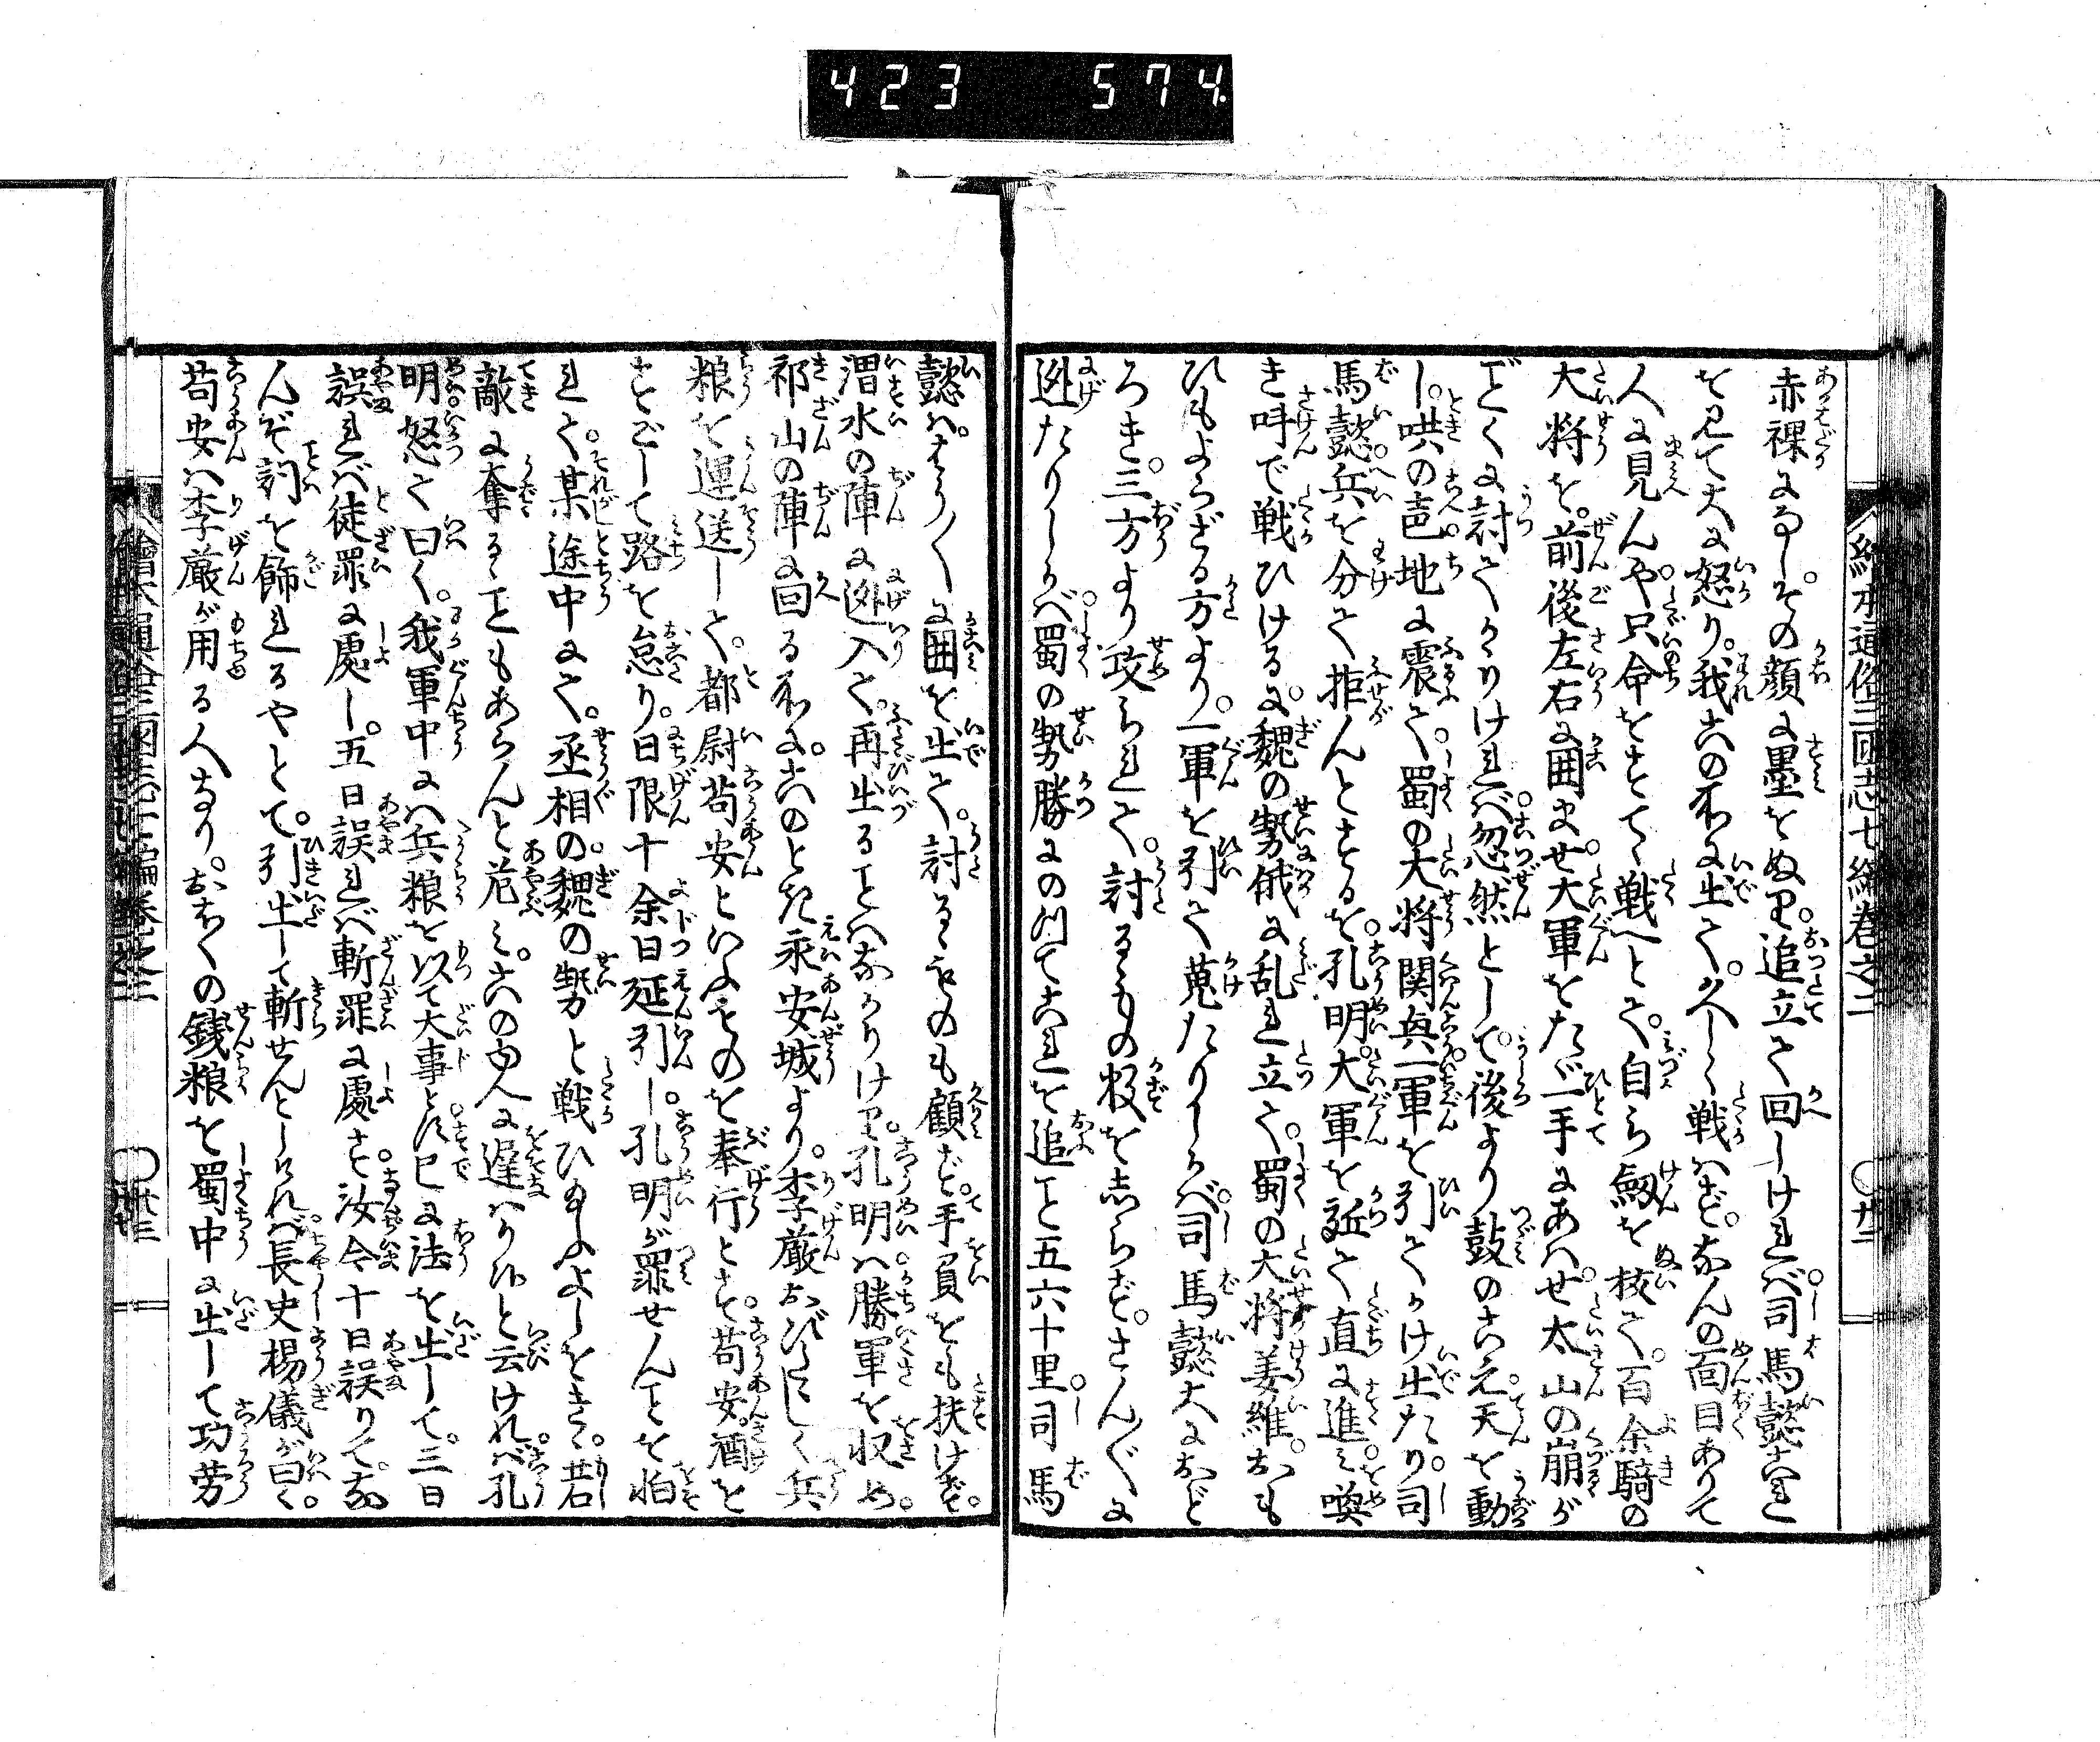 423 574
繪本通俗三国志七編巻之二 ○廿二
赤裸になし。その顔に墨をぬり。追立て回しけれバ。司馬懿これ
を見て大に怒り。我この度に出て。久しく戦ハず。なんの面目ありて
人に見んや。只命をすてゝ戦へとて。自ら劔を抜て。百余騎の
大将を。前後左右に囲ませ。大軍をたゞ一手にあハせ。太山の崩るゝ
ごとくに討てかゝりけれバ。忽然として。後より鼓のこえ。天を動
し。哄の声。地に震て。蜀の大将関興。一軍を引てかけ出たり。司
馬懿。兵を分て拒んとするを。孔明。大軍を近て直に進ミ。喚
き叫で戦ひけるに。魏の勢俄に乱れ立て。蜀の大将姜維。おも
ひもよらざる方より。一軍を引て蒐たりしかバ。司馬懿大におど
ろき。三方より攻られて。討るゝもの数をしらず。さんざんに
迯たりしかバ。蜀の勢勝にのつてこれを追こと五六十里。司馬
懿ハ。やう〳〵に囲を出て。討るゝものも顧ず。手負をも扶けず。
渭水の陣に迯入て。再び出ることハなかりけり。孔明ハ。勝軍を収め。
祁山の陣に回る所に。このとき永安城より。李厳おびたゝしく兵
粮を運送して。都尉苟安といふものを奉行とす。苟安酒を
すごして路を怠り。日限十余日延引し。孔明が罪せんことを怕
れて。某途中にて。丞相の。魏の勢と戦ひ玉ふよしをきゝ。若
敵に奪るゝこともあらんと危ミ。この故に遅ハり候と云けれバ。孔
明怒て曰く。我軍中にハ兵粮を以て大事とす。已に法を出して。三日
誤れバ徒罪に處し。五日誤れバ斬罪に處す。汝今十日誤りて。な
んぞ詞を飾れるやとて。引出して斬せんとしけれバ。長史楊儀が曰く。
苟安ハ李厳が用る人なり。おほくの銭粮を蜀中に出して功労
○廿三